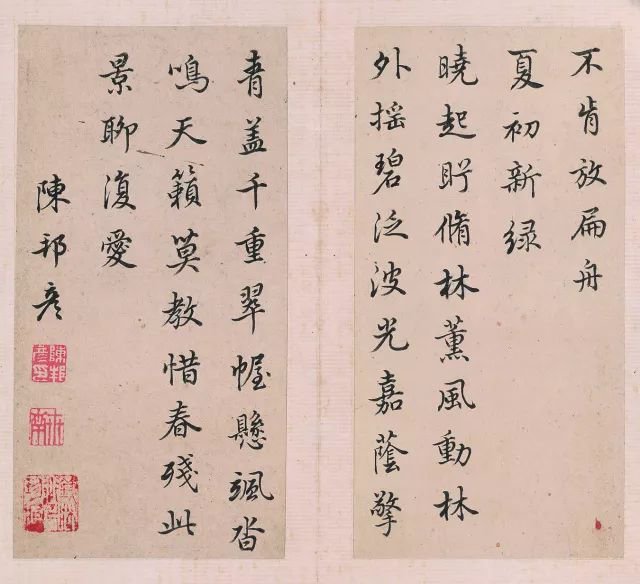 不肯放扁舟
夏初新綠
曉起盱脩林薰風動林
外摇碧泛波光嘉蔭擎
青盖千重翠幄懸颯沓
鳴天籟莫教惜春殘此
景聊復愛
陳邦彦
陳邦
彦印